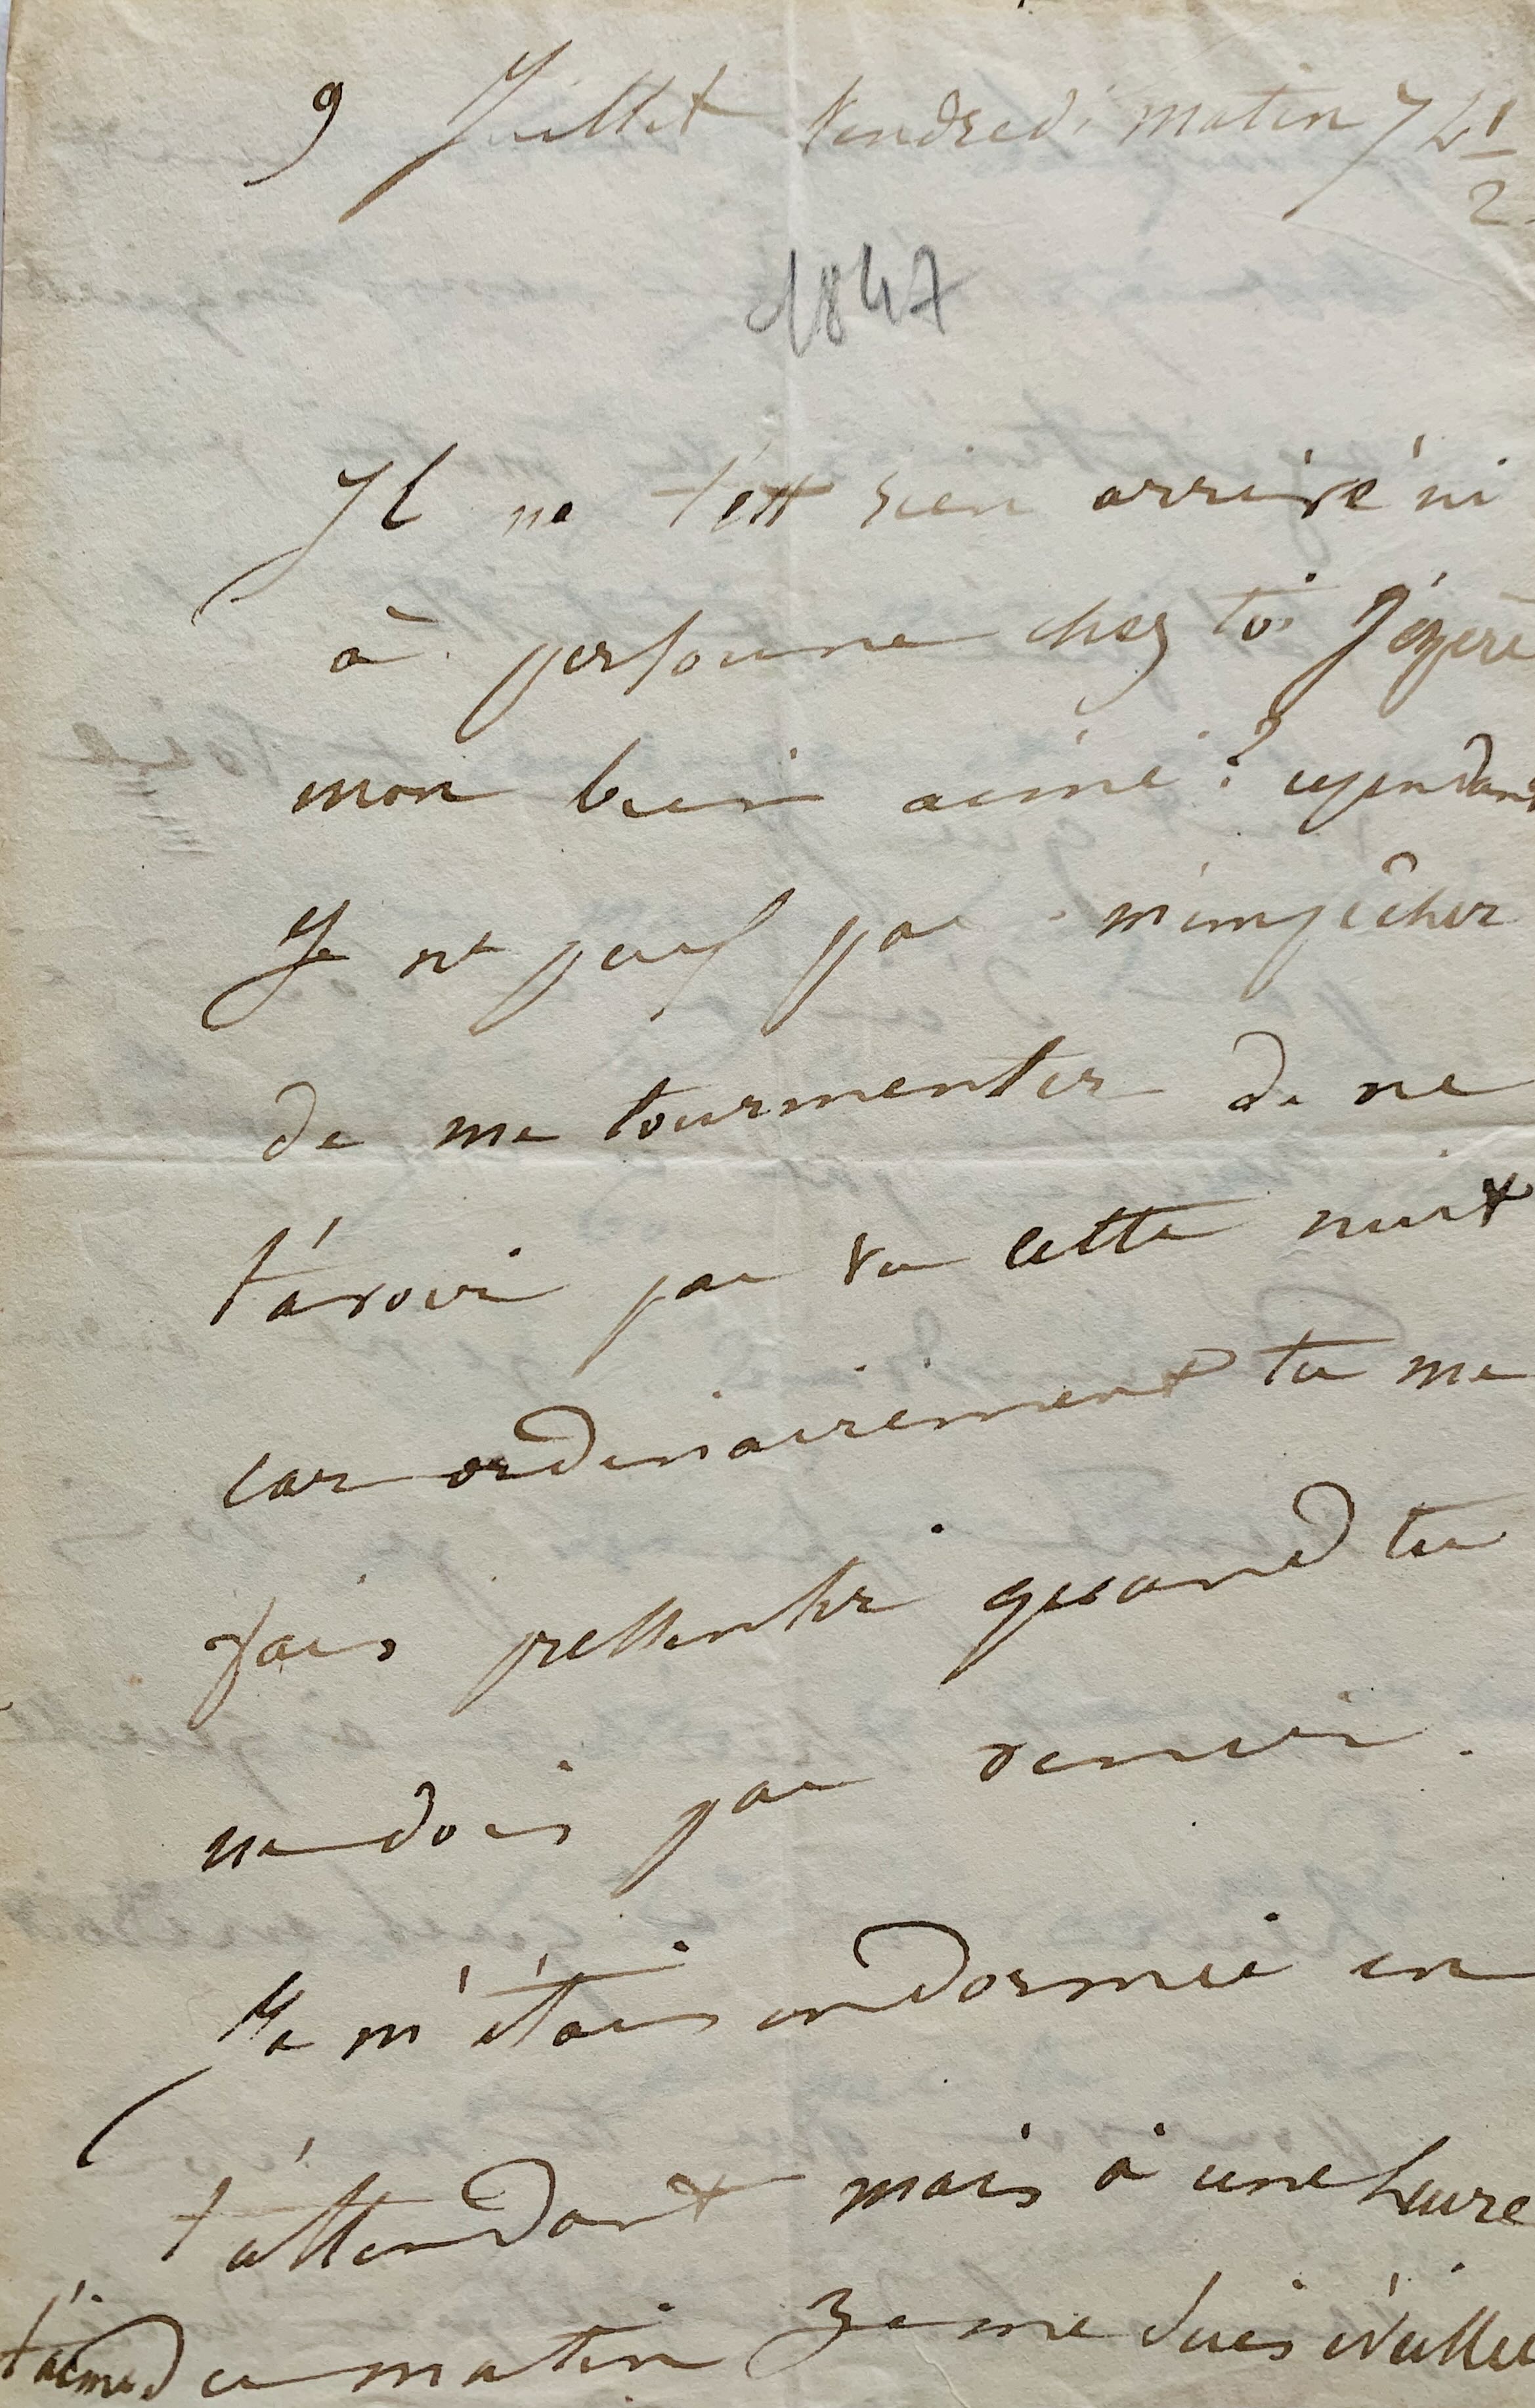 9 Juillet Vendredi matin 7 h 1/2
1847
Il ne t'est rien arrivé ni
à personne chez toi j'espère
mon bien aimé ? cependant
Je ne peux pas m'empêcher
de me tourmenter de ne
t'avoir pas vu cette nuit
car ordinairement tu me
fais pressentir quand tu
ne dois pas venir.
Je m'étais endormie en
t'attendant mais à une heure
du matin Je me suis éveillée
t'aime